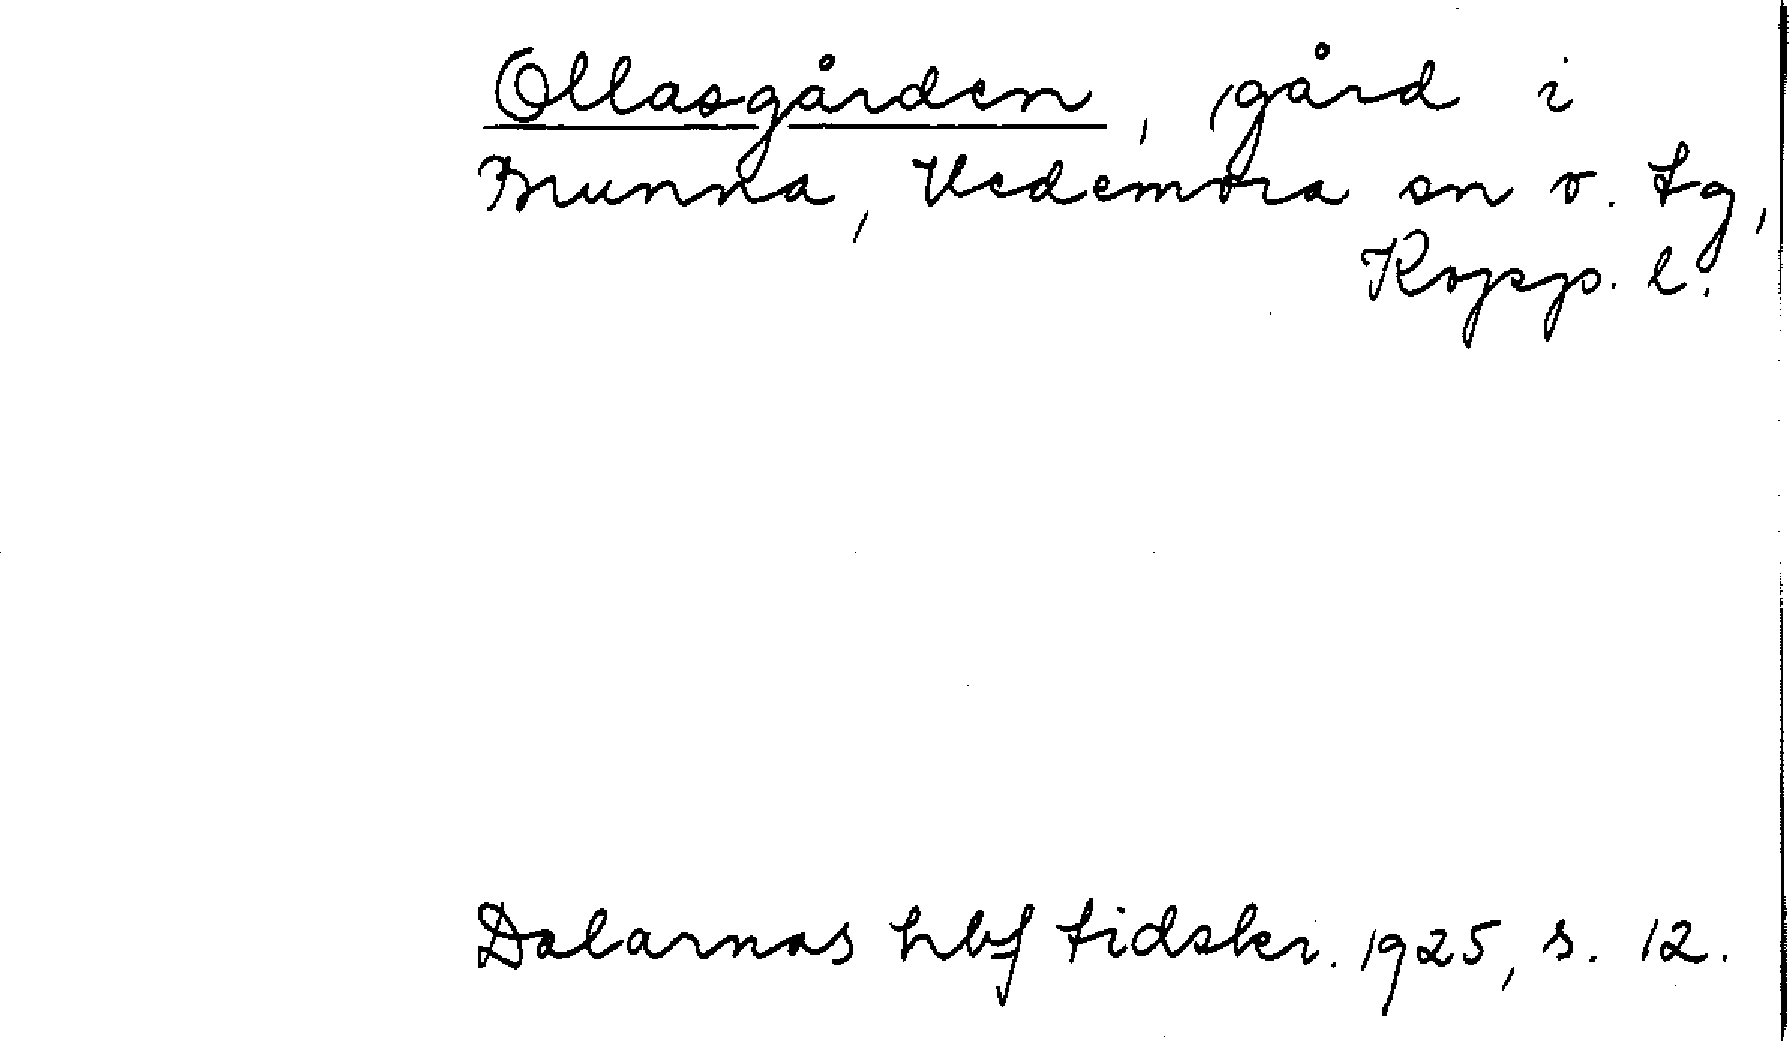 Ollasgården, gård i
Brunna, Vedemora sn o. tg,
Kopp. l.
Dalarnas hbf tidskr. 1925, s. 12.